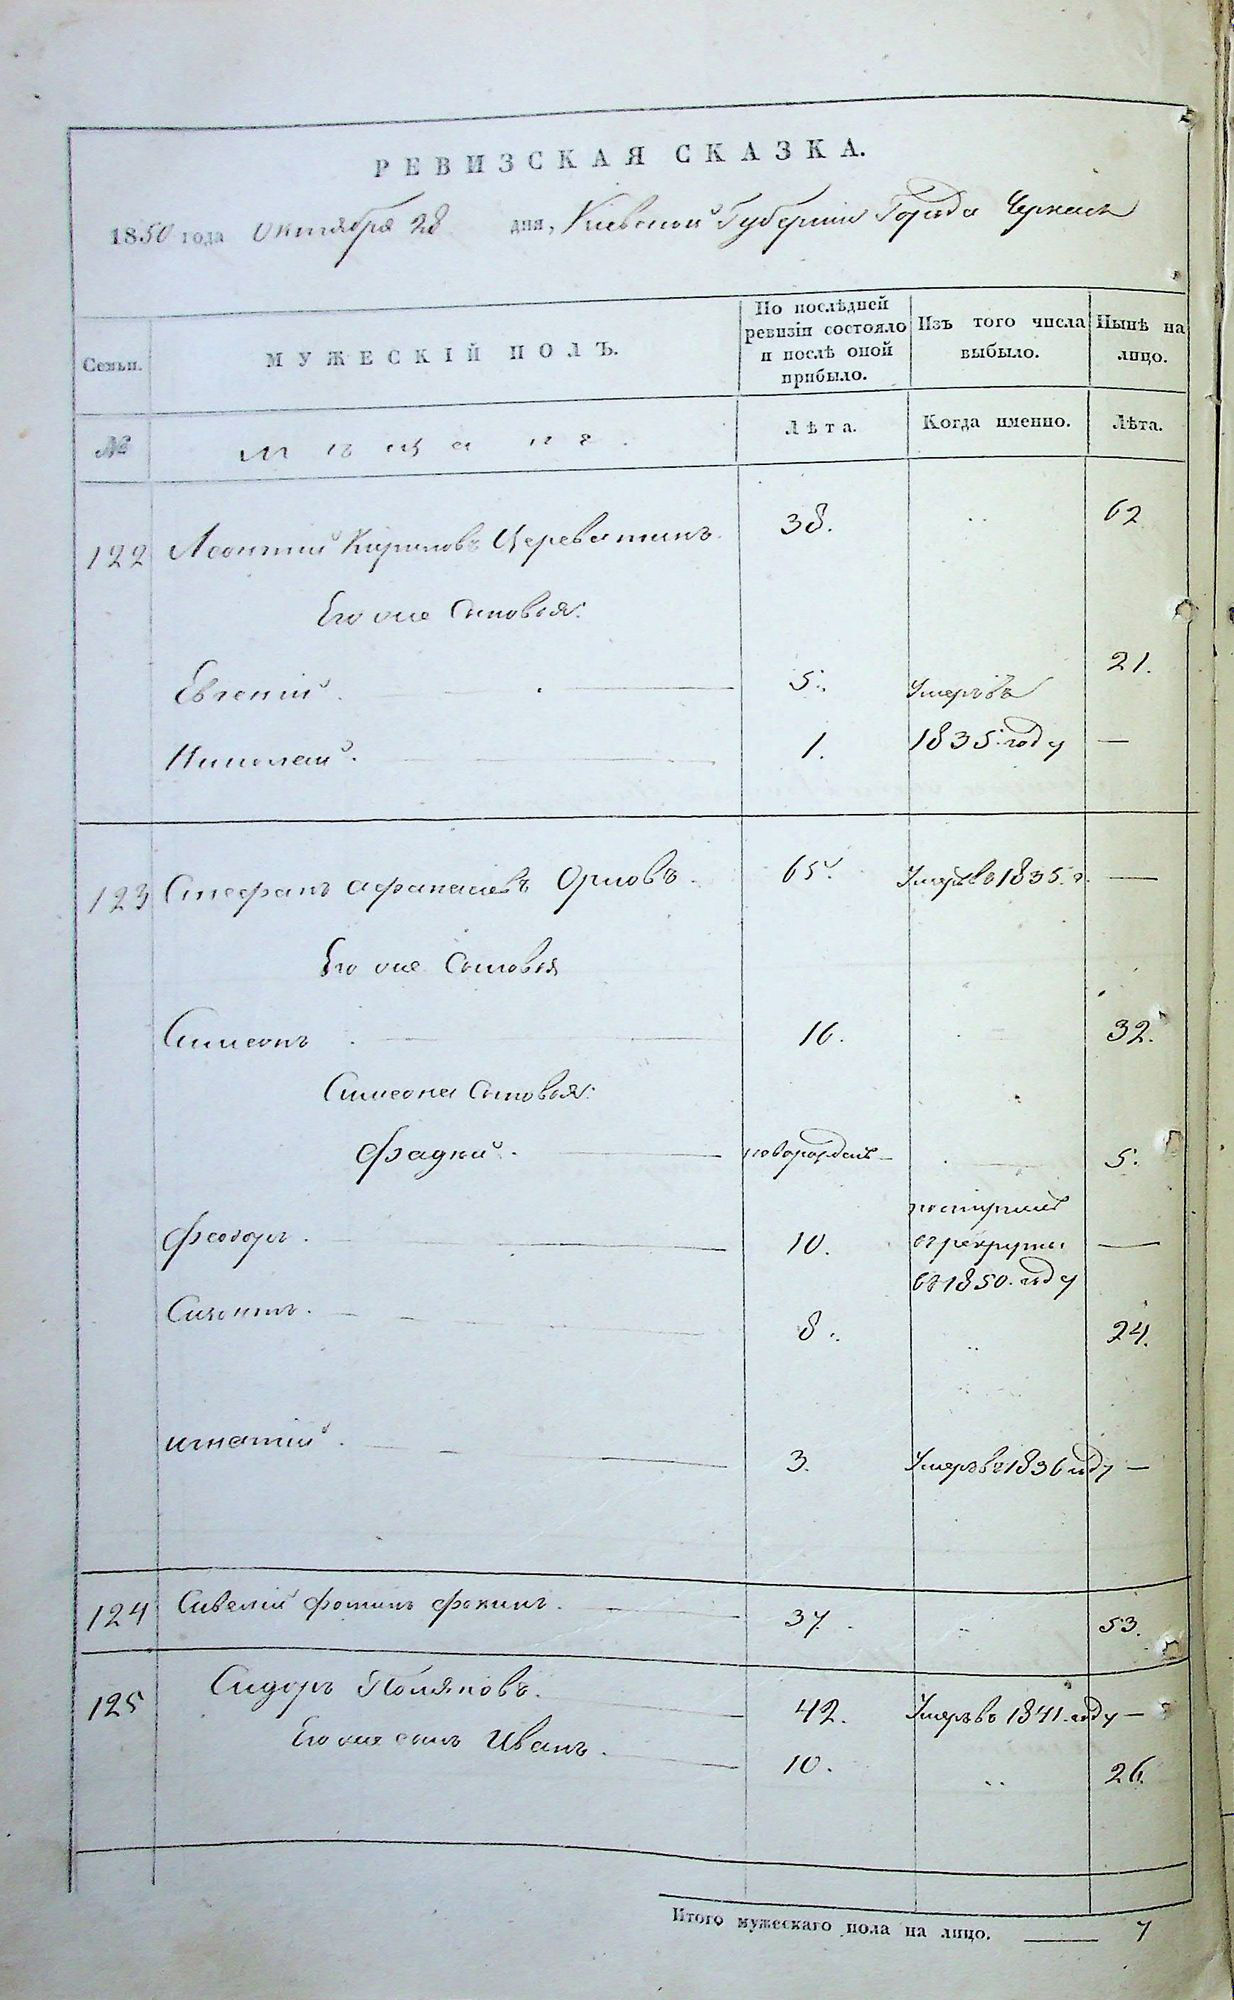 РЕВИЗСКАЯ СКАЗКА.
1850 года Октября 28 дня, Киевской Губернии Города Черкасъ
Семьи. МУЖЕСКІЙ ПОЛЪ. По послѣдней ревизіи состояло и послѣ оной прибыло. Изъ того числа выбыло. Нынѣ на лицо.
№ Мѣщане. Лѣта. Когда именно. Лѣта.
122 Леонтий Кириловъ 38. 62
Его же Сыновья:
Евгений. 5. 21.
Николай. 1. Умеръ въ 1835 году —
123 Стефанъ Афанасьевъ Орловъ. 65. Умеръ въ 1835. г. —
Его же Сыновья
Симеонъ. 16. 32.
Симеона Сыновья:
новорожден— 5.
Феодоръ. 10. поступилъ въ рекруты въ 1850. году —
8. 24.
Игнатій. 3. Умеръ въ 1836 году —
124 Савелій Фокинъ. 37. 53.
125 Сидоръ Поляковъ. 42. Умеръ въ 1841. году —
Его же сынъ Иванъ. 10. 26.
Итого мужескаго пола на лицо. — 7